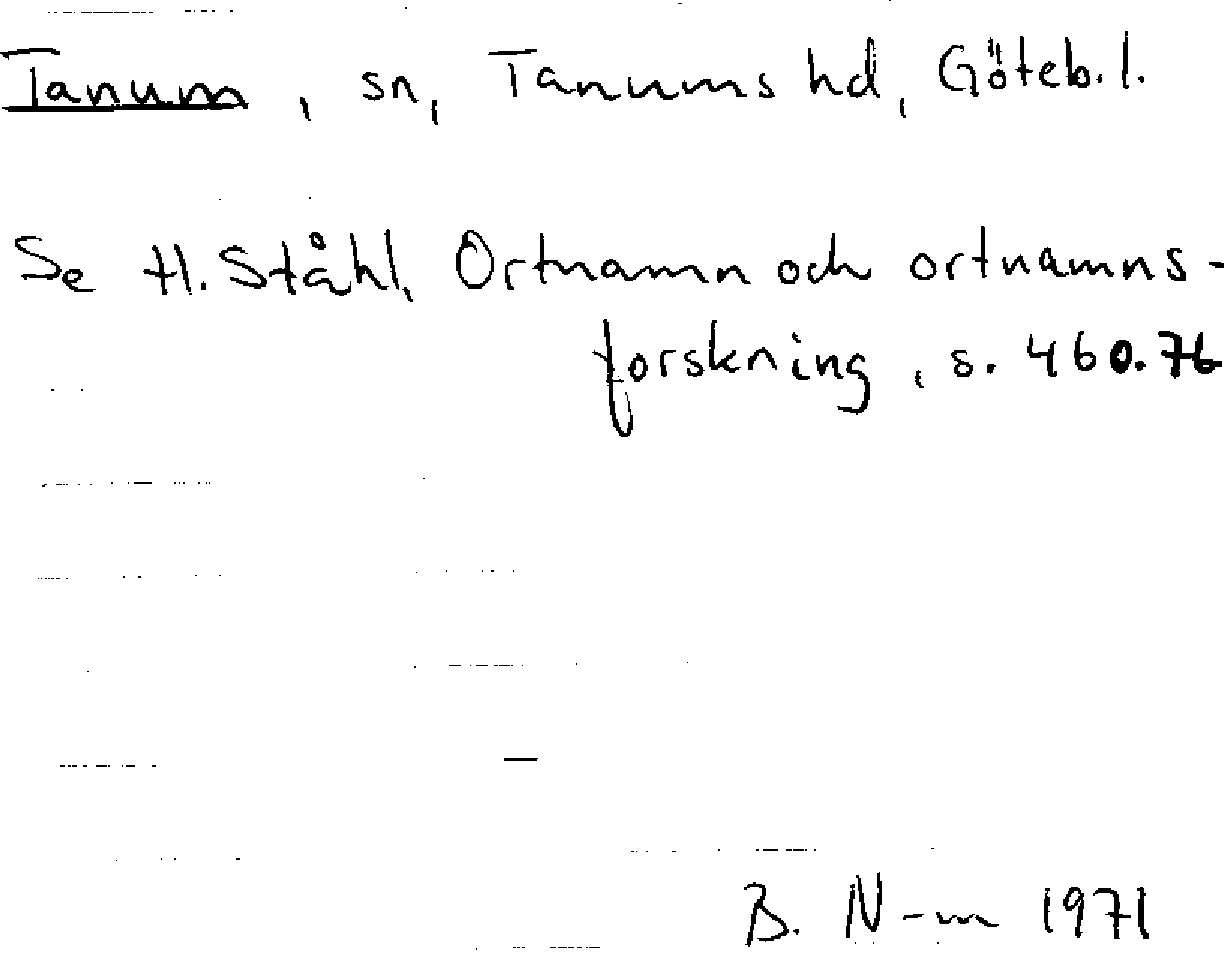 Tanum, sn, Tanums hd, Göteb. l.
Se H. Ståhl, Ortnamn och ortnamns-
forskning, s. 460.76
B. N-m 1971